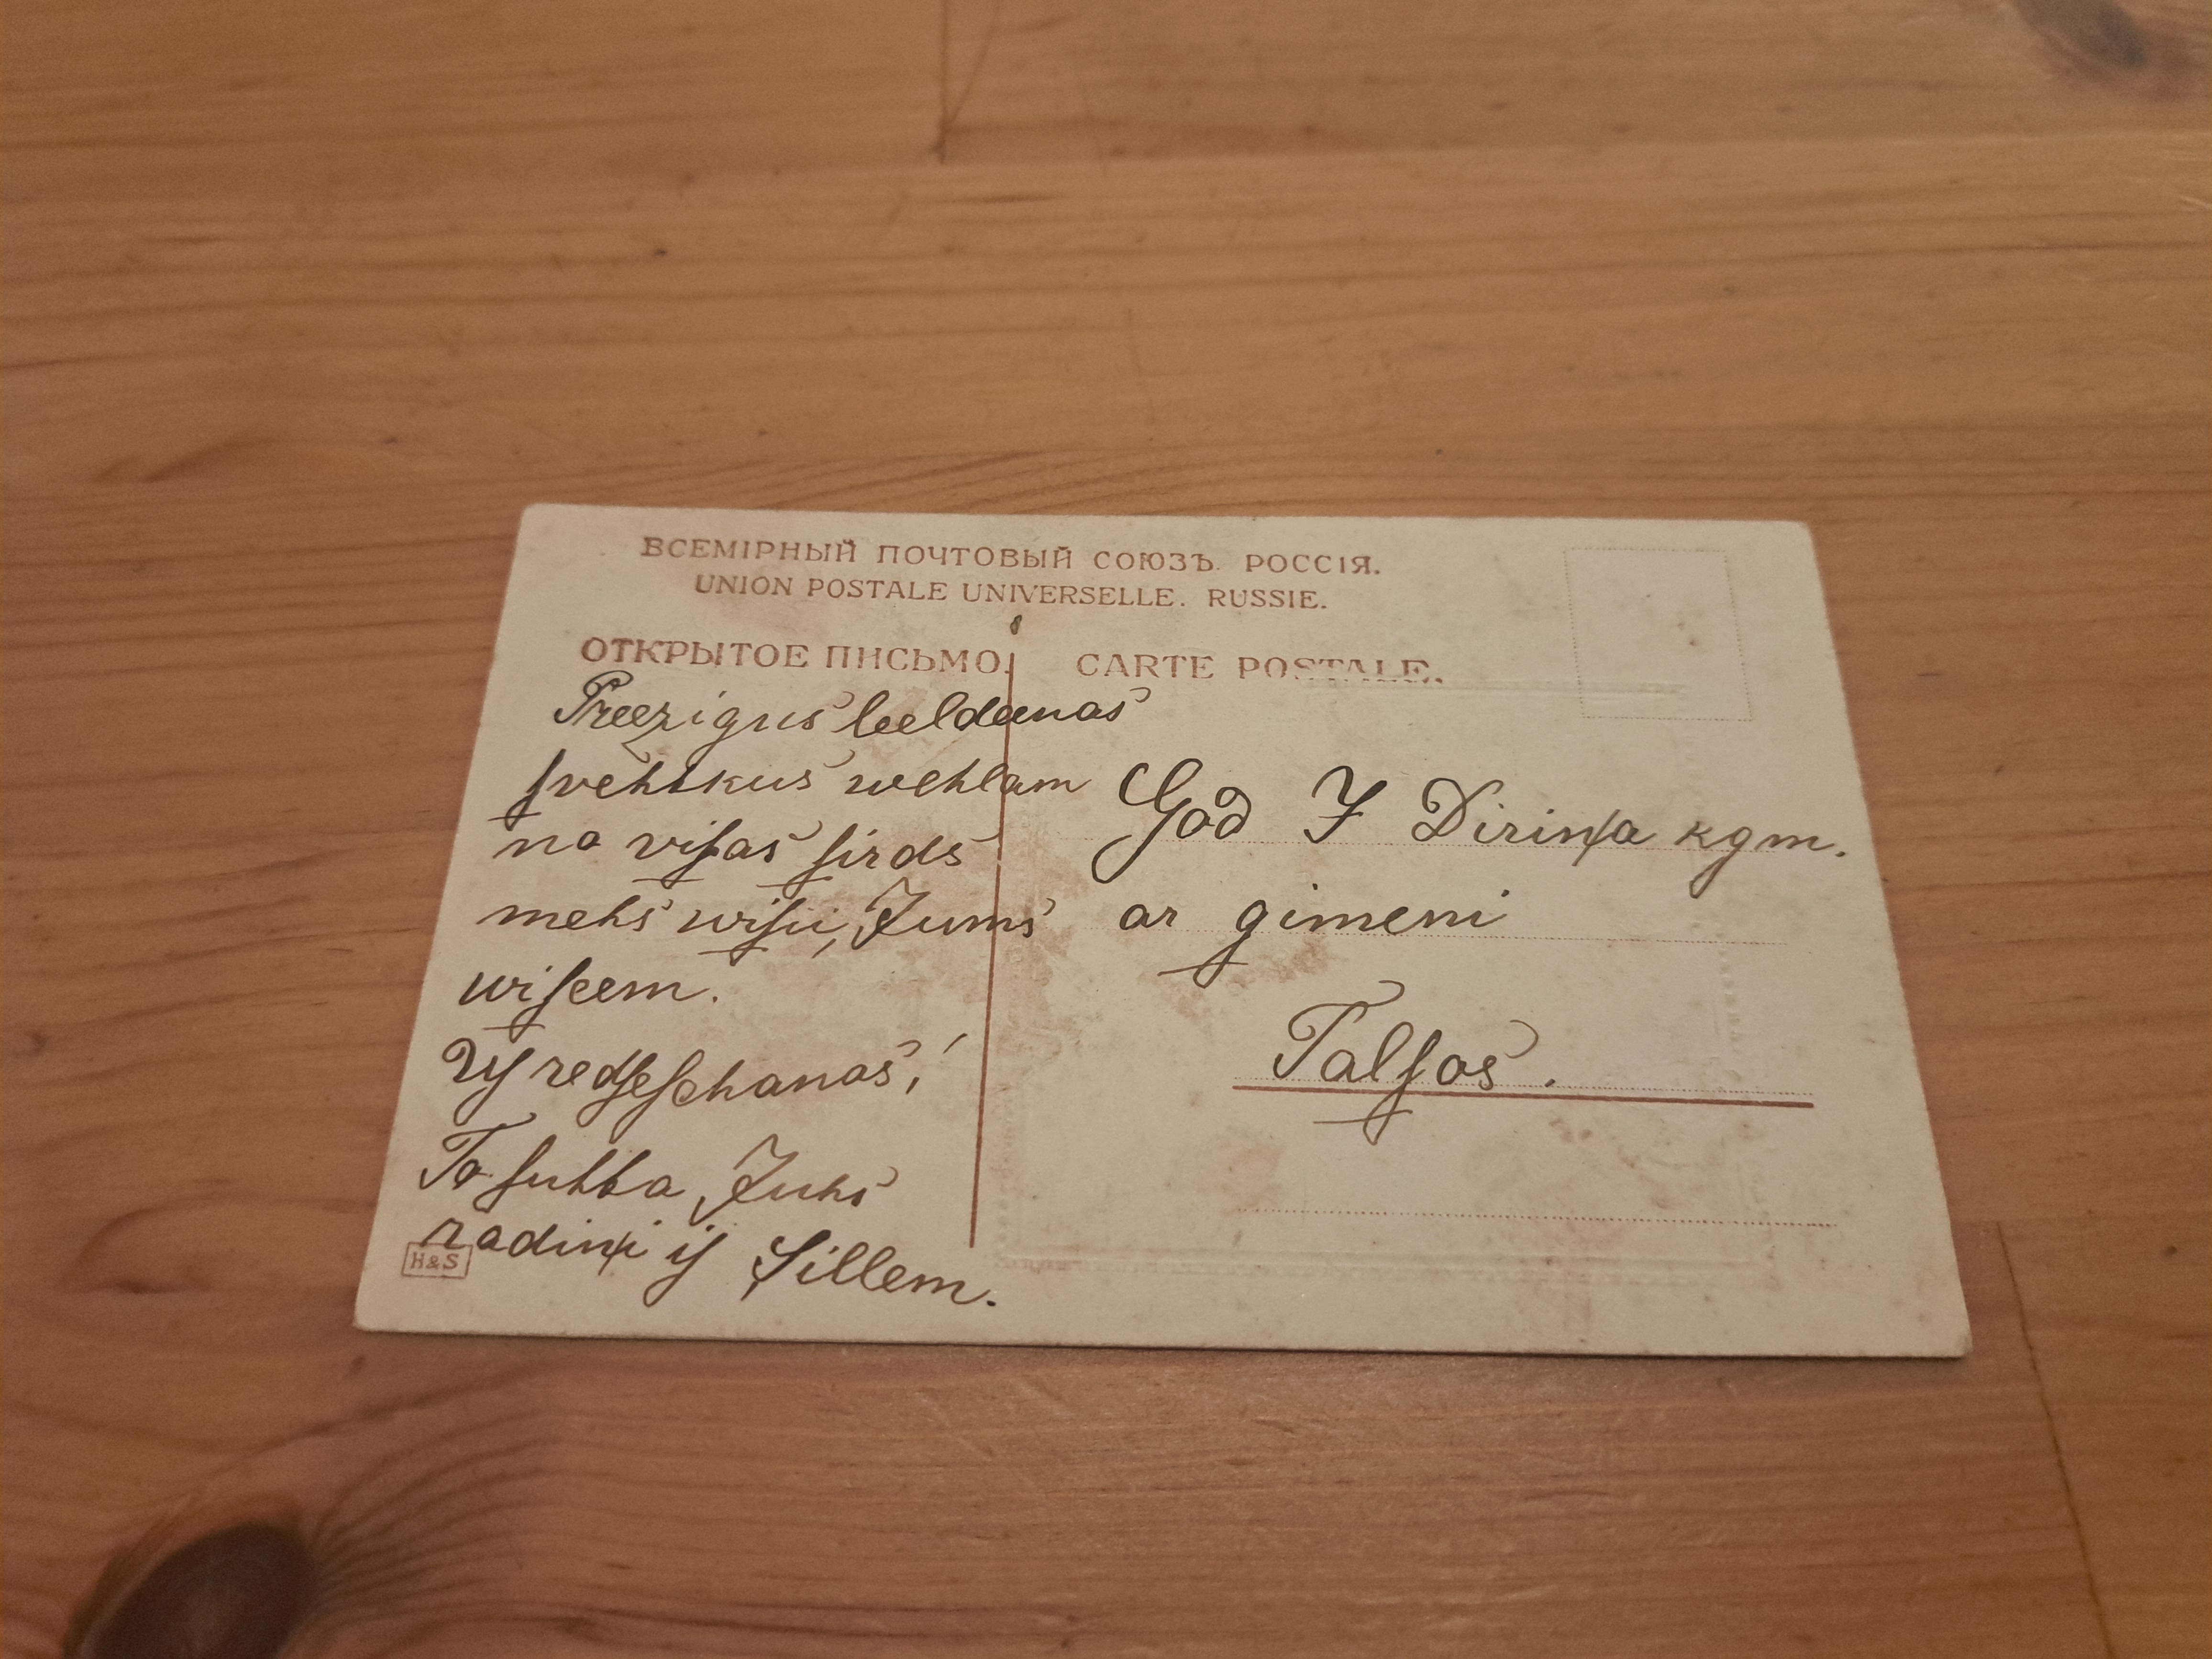 ВСЕМІРНЫЙ ПОЧТОВЫЙ СОЮЗЪ. РОССІЯ.
UNION POSTALE UNIVERSELLE. RUSSIE.
ОТКРЫТОЕ ПИСЬМО. CARTE POSTALE.
Preezigus leeldeenas
ſvehtkus wehlam
no viſas ſirds
mehs wiſii, Jums
wiſeem.
Uſ redſeſchanos!
To ſuhta Juhs
radiņi iſ Sillem.
God J Diriņa kgm.
ar gimeni
Talſos.
H&S